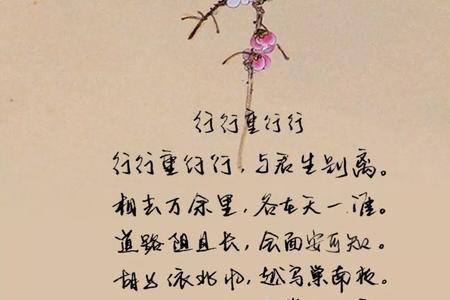 行行重行行
行行重行行，与君生别离。
相去万余里，各在天一涯。
道路阻且长，会面安可知。
胡马依北风，越鸟巢南枝。